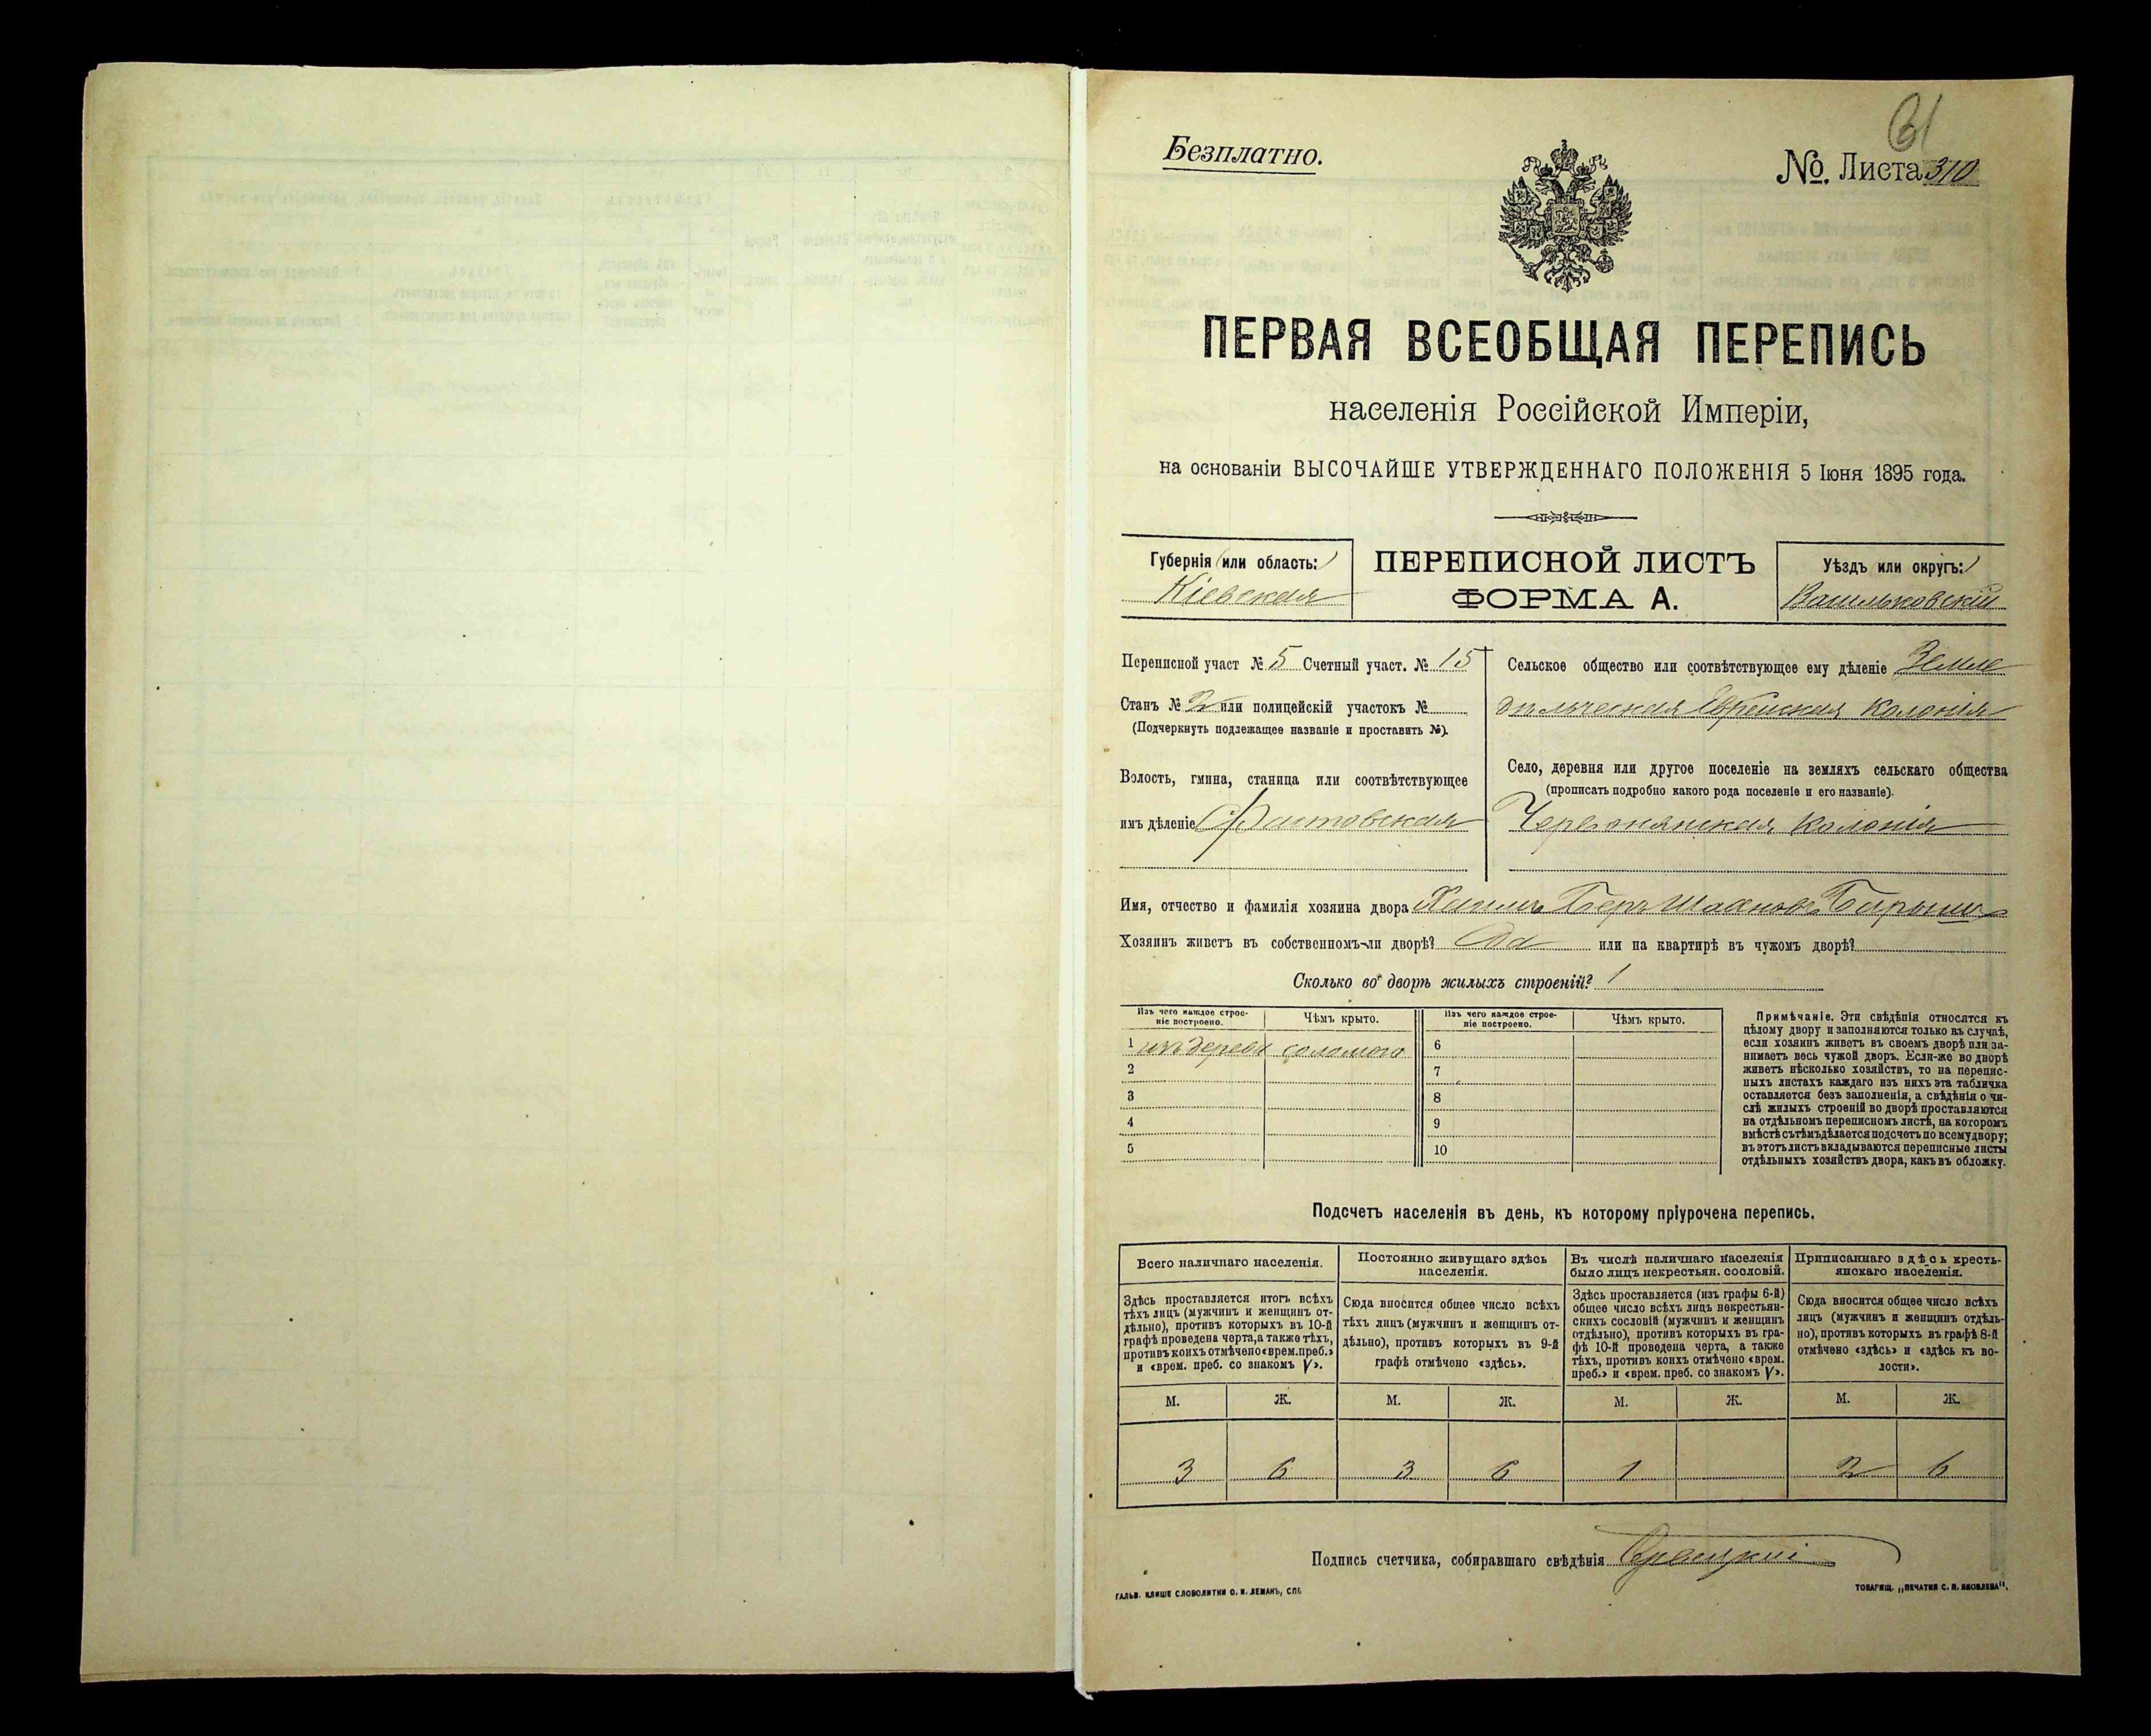 61
Безплатно.
№. Листа 310
ПЕРВАЯ ВСЕОБЩАЯ ПЕРЕПИСЬ
населенія Россійской Имперіи,
на основаніи ВЫСОЧАЙШЕ УТВЕРЖДЕННАГО ПОЛОЖЕНІЯ 5 Іюня 1895 года.
Губернія (или область:)
Кіевская
ПЕРЕПИСНОЙ ЛИСТЪ
ФОРМА А.
Уѣздъ или округъ:)
Васильковскій
Переписной участ № 5 Счетный участ. № 15
Станъ № 2 или полицейскій участокъ №
(Подчеркнуть подлежащее названіе и проставить №).
Волость, гмина, станица или соотвѣтствующее
имъ дѣленіе
Сельское общество или соотвѣтствующее ему дѣленіе Земле
дѣльческая Еврейская Колонія
Село, деревня или другое поселеніе на земляхъ сельскаго общества
(прописать подробно какого рода поселеніе и его названіе).
Червонянская Колонія
Имя, отчество и фамилія хозяина двора
Хозяинъ живетъ въ собственномъ-ли дворѣ? Да или на квартирѣ въ чужомъ дворѣ?
Сколько во дворѣ жилыхъ строеній? 1
Изъ чего каждое строе-
ніе построено.
Чѣмъ крыто.
Изъ чего каждое строе-
ніе построено.
Чѣмъ крыто.
1 изъ дерева соломою 6
2 7
3 8
4 9
5 10
Примѣчаніе. Эти свѣдѣнія относятся къ
цѣлому двору и заполняются только въ случаѣ,
если хозяинъ живетъ въ своемъ дворѣ или за-
нимаетъ весь чужой дворъ. Если-же во дворѣ
живетъ нѣсколько хозяйствъ, то на перепис-
ныхъ листахъ каждаго изъ нихъ эта табличка
оставляется безъ заполненія, а свѣдѣнія о чи-
слѣ жилыхъ строеній во дворѣ проставляются
на отдѣльномъ переписномъ листѣ, на которомъ
вмѣстѣ съ тѣмъ дѣлается подсчетъ по всему двору;
въ этотъ листъ вкладываются переписные листы
отдѣльныхъ хозяйствъ двора, какъ въ обложку.
Подсчетъ населенія въ день, къ которому пріурочена перепись.
Всего наличнаго населенія.
Здѣсь проставляется итогъ всѣхъ
тѣхъ лицъ (мужчинъ и женщинъ от-
дѣльно), противъ которыхъ въ 10-й
графѣ проведена черта, а также тѣхъ,
противъ коихъ отмѣчено «врем. преб.»
и «врем. преб. со знакомъ V».
Постоянно живущаго здѣсь
населенія.
Сюда вносится общее число всѣхъ
тѣхъ лицъ (мужчинъ и женщинъ от-
дѣльно), противъ которыхъ въ 9-й
графѣ отмѣчено «здѣсь».
Въ числѣ наличнаго населенія
было лицъ некрестьян. сословій.
Здѣсь проставляется (изъ графы 6-й)
общее число всѣхъ лицъ некрестьян-
скихъ сословій (мужчинъ и женщинъ
отдѣльно), противъ которыхъ въ гра-
фѣ 10-й проведена черта, а также
тѣхъ, противъ коихъ отмѣчено «врем.
преб.» и «врем. преб. со знакомъ V».
Приписаннаго здѣсь кресть-
янскаго населенія.
Сюда вносится общее число всѣхъ
лицъ (мужчинъ и женщинъ отдѣль-
но), противъ которыхъ въ графѣ 8-й
отмѣчено «здѣсь» и «здѣсь къ во-
лости».
М. Ж. М. Ж. М. Ж. М. Ж.
3 6 3 6 1 2 6
Подпись счетчика, собиравшаго свѣдѣнія
ГАЛЬВ. КЛИШЕ СЛОВОЛИТНИ О. И. ЛЕМАНЪ, СПБ
ТОВАРИЩ. „ПЕЧАТНЯ С. П. ЯКОВЛЕВА".